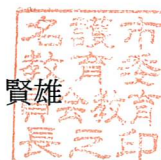 名護市
教育委
員会教育
長之印
賢雄